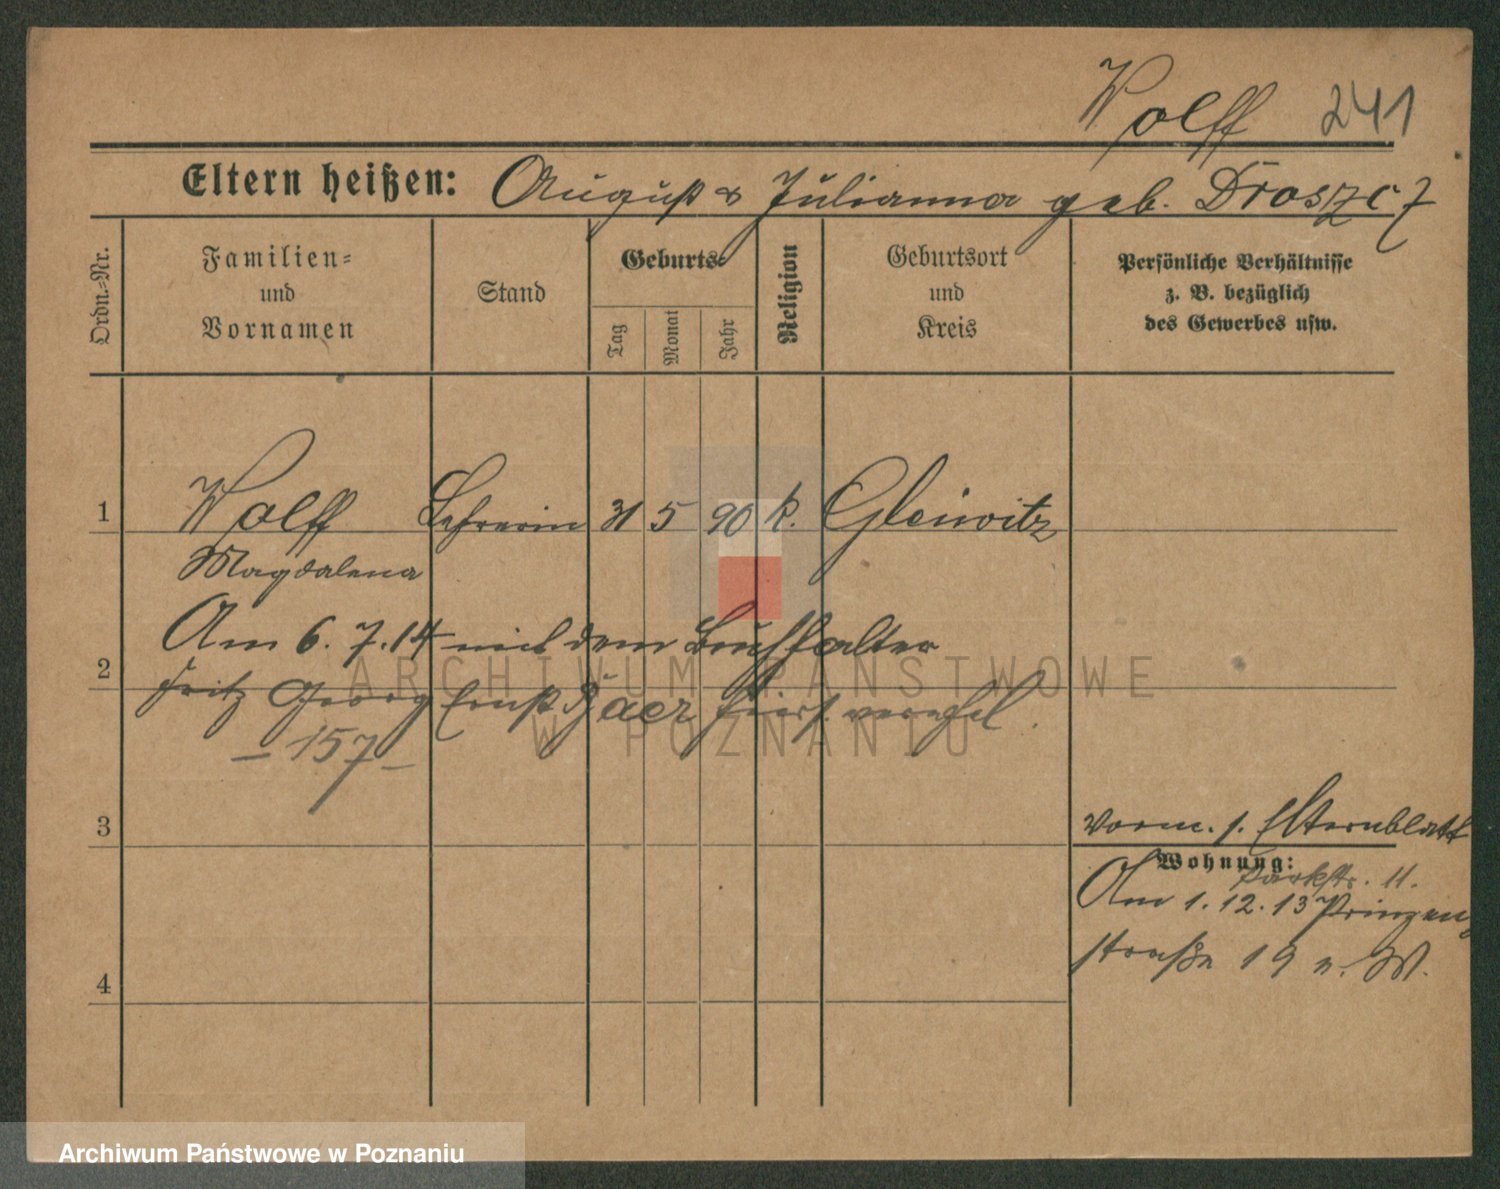 Wolff 241
Eltern heißen: August & Julianna geb. Droszcz
Ordn.-Nr.
Familien=
und
Vornamen
Stand
Geburts=
Tag
Monat
Jahr
Religion
Geburtsort
und
Kreis
Persönliche Verhältnisse
z. B. bezüglich
des Gewerbes usw.
1 Wolff Lehrerin 31 5 90 k. Gleiwitz
Magdalena
Am 6. 7. 14 mit dem Buchhalter
2
Fritz Georg Ernst hier verehel.
– 157 –
3
vorm. s. Elternblatt
Wohnung:
Parkstr. 11.
Am 1. 12. 13 Prinzen
straße 19 n. W.
4
ARCHIWUM PAŃSTWOWE
W POZNANIU
Archiwum Państwowe w Poznaniu